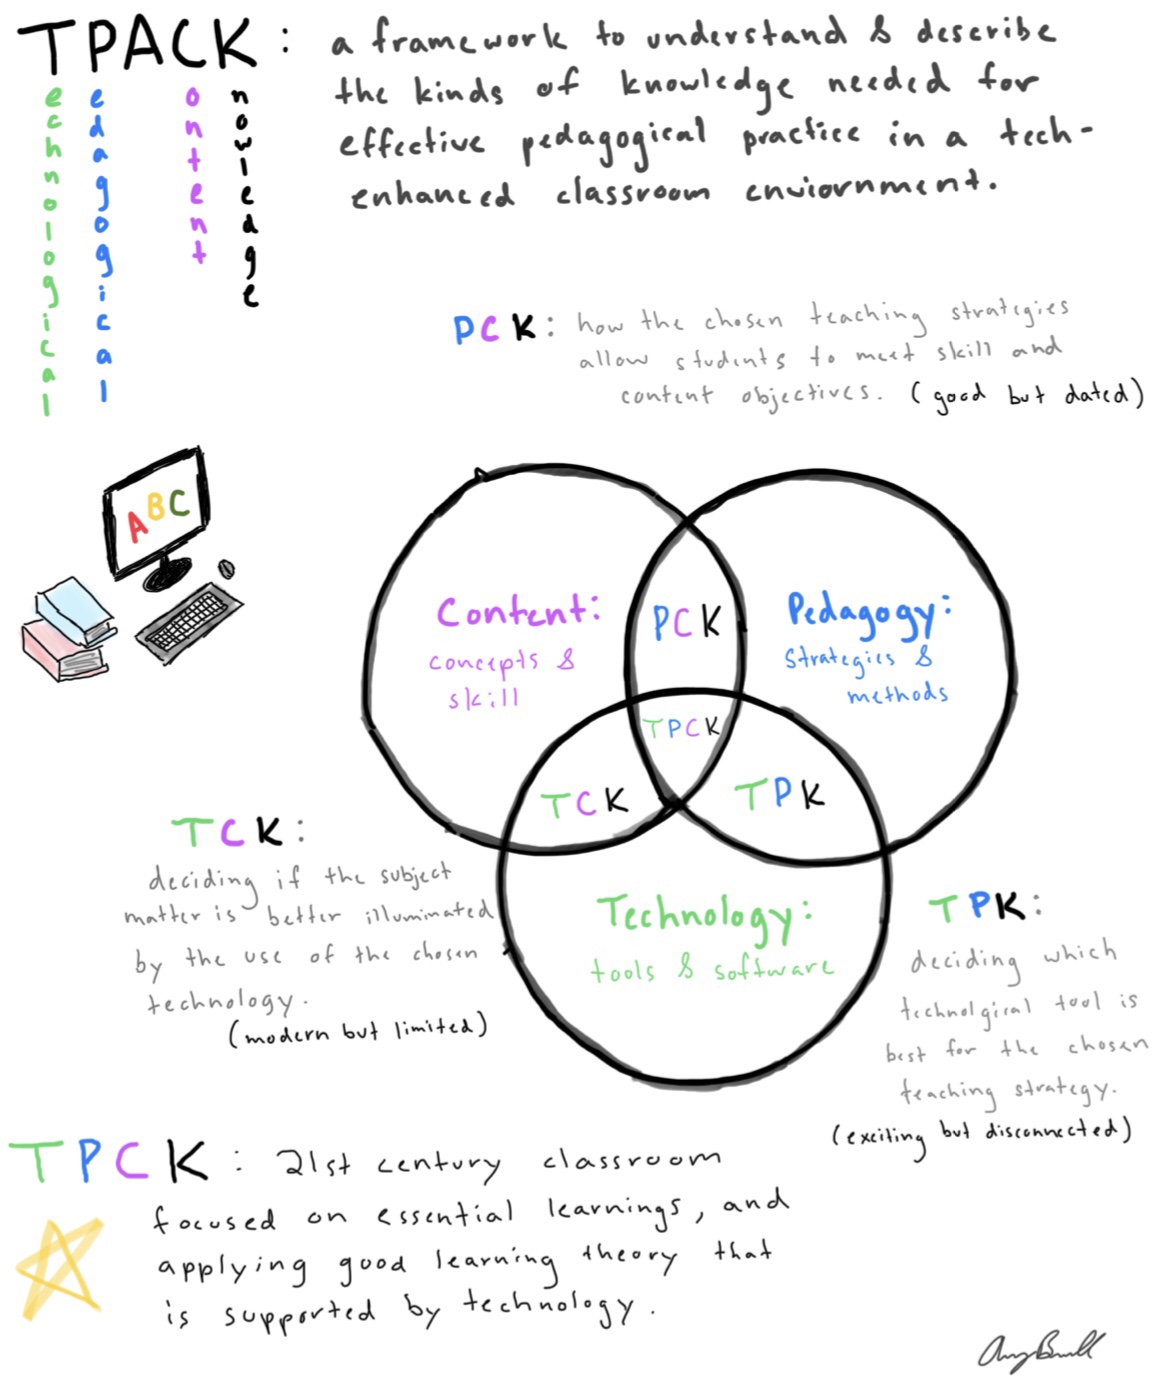 TPACK: a framework to understand & describe
the kinds of knowledge needed for
effective pedagogical practice in a tech-
enhanced classroom enviornment.
echnological
edagogical
ontent
nowledge
PCK: how the chosen teaching strategies
allow students to meet skill and
content objectives. (good but dated)
ABC
Content:
concepts &
skill
PCK
Pedagogy:
Strategies &
methods
TPCK
TCK
TPK
TCK:
deciding if the subject
matter is better illuminated
by the use of the chosen
technology.
(modern but limited)
Technology:
tools & software
TPK:
deciding which
technolgical tool is
best for the chosen
teaching strategy.
(exciting but disconnected)
TPCK: 21st century classroom
focused on essential learnings, and
applying good learning theory that
is supported by technology.